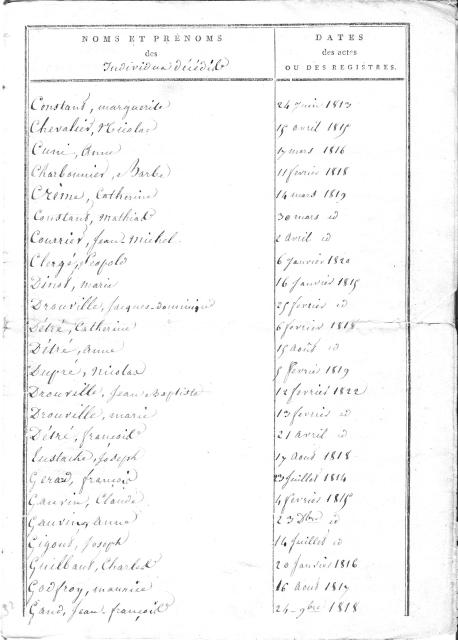 NOMS ET PRÉNOMS
des
Individus décédés
DATES
des actes
OU DES REGISTRES.
Constant, marguerite 24 Juin 1813
Chevalier, Nicolas 15 avril 1815
Cuni, Anne 17 mars 1816
Charbonnier, Barbe 11 fevrier 1818
Crême, Catherine 14 mars 1819
Constant, Mathias 30 mars id
Courrier, Jean-Michel 2 Avril id
Clergé, Léopold 6 Janvier 1820
Dinot, marie 16 Janvier 1815
Drouville, Jacques-dominique 25 fevrier id
Détré, Catherine 6 fevrier 1818
Détré, Anne 15 Août id
Dupré, Nicolas 5 fevrier 1819
Drouville, Jean-Baptiste 12 fevrier 1822
Drouville, marie 13 fevrier id
Détré, françois 21 Avril id
Eustache, Joseph 17 Aout 1818
Gerard, françois 23 Juillet 1814
Gauvin, Claude 4 fevrier 1815
Gauvin, Anne 23 id
Gigout, Joseph 14 Juillet id
Guilbaut, Charles 20 Janvier 1816
Godfroy, maurice 16 Aout 1817
Gand, Jean-françois 24 9bre 1818